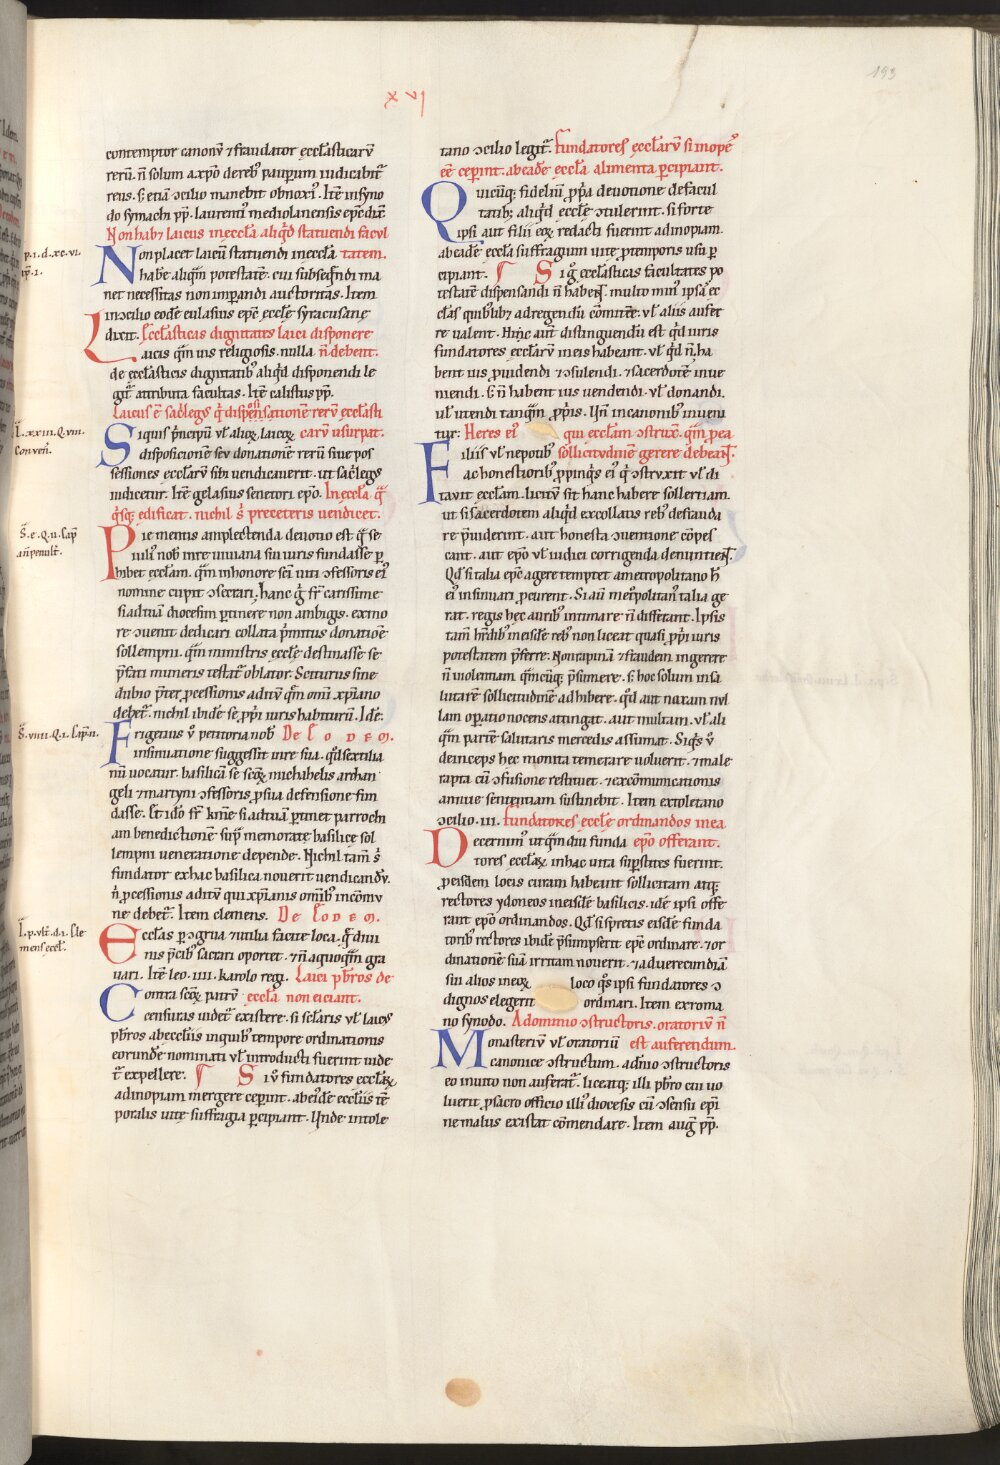 193
xvi
contemptor canonū ⁊ fraudator eccl̄asticarū
rerū. n̄ solum a xp̄o de reb᷒ paupum iudicabit᷑
reus. s; etiā ↄcilio manebit obnoxi᷒. Itē in syno
do symachi pp̄. laurenti᷒ mediolanensis epc̄ dix̄.
Non hab; laicus in eccl̄a aliq̄d statuendi facul
Non placet laicū statuendi in eccl̄a tatem.
habe aliq̄m potestatē. cui subseq̄ndi ma
net necessitas non imꝑandi auctoritas. Item
in ↄcilio eodē eulasius epc̄ eccl̄e syracusane
dixit. Eccl̄asticas dignitates laici disponere
Laicis q̄m uis religiosis. nulla n̄ debent.
de eccl̄asticis dignitatib᷒ aliq̄d disponendi le
git᷑ attributa facultas. Itē calistus pp̄.
Laicus ē sac̄legus q̄ dispensationē rerū eccl̄asti
Si quis p̄ncipū vl̄ alioꝝ laicoꝝ carū usurpat.
dispositionē seu donationē rerū siue pos
sessiones eccl̄arū sibi uendicauerit. ut sac̄legus
iudicetur. Itē gelasius senetori epō. In eccl̄a q̄
q̄sq; edificat. nichil s̄ preceteris uendicet.
Pie mentis amplectenda deuotio est q̄ se
iuli᷒ nob̄ in re iuuiana sui iuris fundasse ꝑ
hibet eccl̄am. q̄m in honore sc̄i uiti ↄfessoris ei᷒
nomine cupit ↄsecrari. hanc ḡ fr̄ carissime
si ad tuā diocesim ꝑtinere non ambigis. ex mo
re ↄuenit dedicari collata p̄mitus donatiōe
sollempni. q̄m ministris eccl̄e destinasse se
p̄fati muneris testat᷑ oblator. Sciturus sine
dubio p̄ter ꝓcessionis aditū q̄m omī xp̄iano
debet᷑. nichil ibidē se ꝓpri iuris habiturū. Idē.
Frigetius v̄ petitoria nob̄ De Eodem.
insinuatione suggessit in re sua. q̄d sextilia
nū uocatur. basilicā se sc̄oꝝ michahelis archan
geli ⁊ martyni ↄfessoris ꝓ sua defensione fun
dasse. Et idō fr̄ kr̄me si ad tuā ꝑtinet parroch
am benedictionē sup̄ memorate basilice sol
lempni ueneratione depende. Nichil tam̄ s̄
fundator ex hac basilica nouerit uendicandū.
n̄ ꝓcessionis aditū qui xp̄ianis om̄ib᷒ in cōmu
ne debet᷑. Item clemens. De Eodem.
Eccl̄as ꝑ ↄgrua ⁊ utilia facite loca. q̄ diui
nis p̄cib᷒ sacrari oportet. ⁊ n̄ a quoq̄m gra
uari. Itē leo. iiii. karolo regi. Laici p̄bros de
Contra sc̄oꝝ patrū eccl̄a non eiciant.
censuras uidet᷑ existere. si sc̄laris vl̄ laic᷒
p̄bros ab eccl̄iis in quib᷒ tempore ordinationis
eorundē nominati vl̄ introducti fuerint uide
t᷑ expellere. ¶ Si v̄ fundatores eccl̄aꝝ
ad inopiam mergere ceꝑint. ab eisdē eccl̄iis tē
poralis uite suffragia ꝑcipiant. Unde in tole
tano ↄcilio legit᷑. Fundatores eccl̄arū si inope᷒
eē ceꝑint. ab eadē eccl̄a alimenta ꝑcipiant.
Quicūq; fideliū ꝓp̄a deuotione de facul
tatib; aliq̄d eccl̄e ↄtulerint. si forte
ipsi aut filii eoꝝ redacti fuerint ad inopiam.
ab eadē eccl̄a suffragium uite ꝓ temporis usu ꝑ
cipiant. ¶ Si ḡ eccl̄asticas facultates po
testatē dispensandi n̄ haben̄t. multo min᷒ ipsas ec
cl̄as quib᷒lib; ad regendū cōmitte᷑. vl̄ aliis aufer
re ualent. Hinc aut̄ distinguendū est q̄d iuris
fundatores eccl̄arū in eis habeant. vl̄ q̄d n̄. ha
bent ius ꝓuidendi ⁊ ↄsulendi. ⁊ sacerdotē inue
niendi. s; n̄ habent ius uendendi. vl̄ donandi.
ul̄ utendi tanq̄m ꝓp̄ris. Un̄ in canonib᷒ inueni
tur: Heres ei᷒ qui eccl̄am ↄstrux̄. q̄m p̄ea
Filiis vl̄ nepotib᷒ sollicitudinē gerere debeant.
ac honestiorib᷒ ꝓpinq̄s ei᷒ q̄ ↄstruxit vl̄ di
tauit eccl̄am. licitū sit hanc habere sollertiam.
ut si sacerdotem aliq̄d ex collatis reb᷒ defrauda
re p̄uiderint. aut honesta ↄuentione cōpes
cant. aut epō vl̄ iudici corrigenda denuntient.
Qd̄ si talia epc̄ agere temptet a metropolitano h̄
ei᷒ insinuari ꝓcurent. Si aū met̄politan᷒ talia ge
rat. regis hec aurib᷒ intimare n̄ differant. Ipsis
tam̄ hr̄dib᷒ in eisdē reb᷒ non liceat quasi ꝓpri iuris
potestatem p̄ferre. Non rapinā ⁊ fraudem ingerere
n̄ uiolentiam q̄mcūq; p̄sumere. s; hoc solum in sa
lutarē sollicitudinē adhibere. q̄d aut noxam nul
lam oꝑatio nocens attingat. aut multam. vl̄ ali
q̄m partē salutaris mercedis assumat. Siq̄s v̄
deinceps hec monita temerare uoluerit. ⁊ male
rapta cū ↄfusione restituet. ⁊ excōmunicationis
annue sententiam sustinebit. Item ex toletano
ↄcilio. iii. Fundatores eccl̄e ordinandos in ea
Decernim᷒ ut q̄mdiu funda epō offerant.
tores eccl̄aꝝ in hac uita suꝑstites fuerint.
ꝓ eisdem locis curam habeant sollicitam atq;
rectores ydoneos in eisdē basilicis. idē ipsi offe
rant epō ordinandos. Qd̄ si spretis eisdē funda
torib᷒ rectores ibidē p̄sumpserit epc̄ ordinare. ⁊ or
dinationē suā irritam nouerit. ⁊ ad uerecundiā
sui alios in eoꝝ loco q̄s ipsi fundatores ↄ
dignos elegerit ordinari. Item ex roma
no synodo. A dominio ↄstructoris. oratoriū n̄
Monasteriū vl̄ oratoriū est auferendum.
canonice ↄstructum. a dn̄io ↄstructoris
eo inuito non auferat᷑. liceatq; illi p̄bro cui uo
luerit. ꝓ sacro officio illi᷒ diocesis cū ↄsensu epī
ne malus existat cōmendare. Item aug᷑ pp̄.